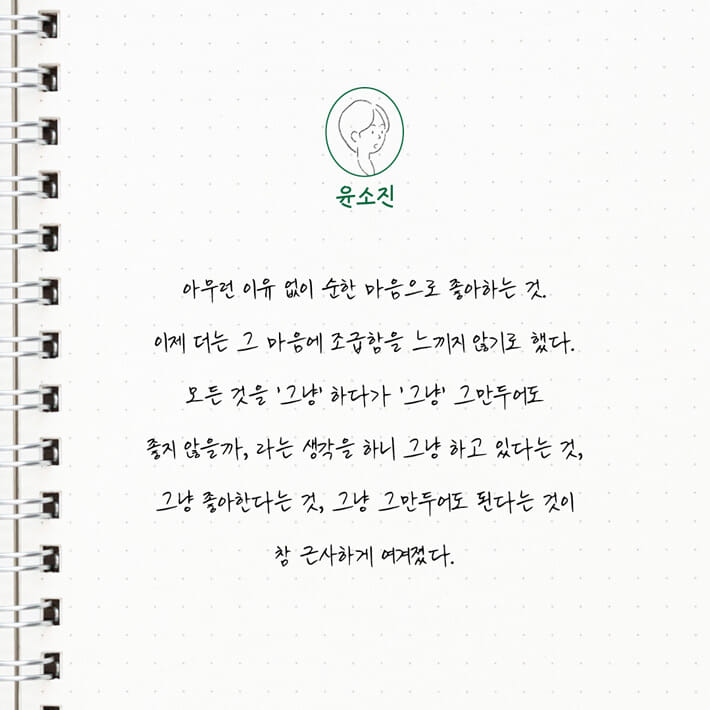 윤소진
아무런 이유 없이 순한 마음으로 좋아하는 것.
이제 더는 그 마음에 조급함을 느끼지 않기로 했다.
모든 것을 '그냥' 하다가 '그냥' 그만두어도
좋지 않을까, 라는 생각을 하니 그냥 하고 있다는 것,
그냥 좋아한다는 것, 그냥 그만두어도 된다는 것이
참 근사하게 여겨졌다.